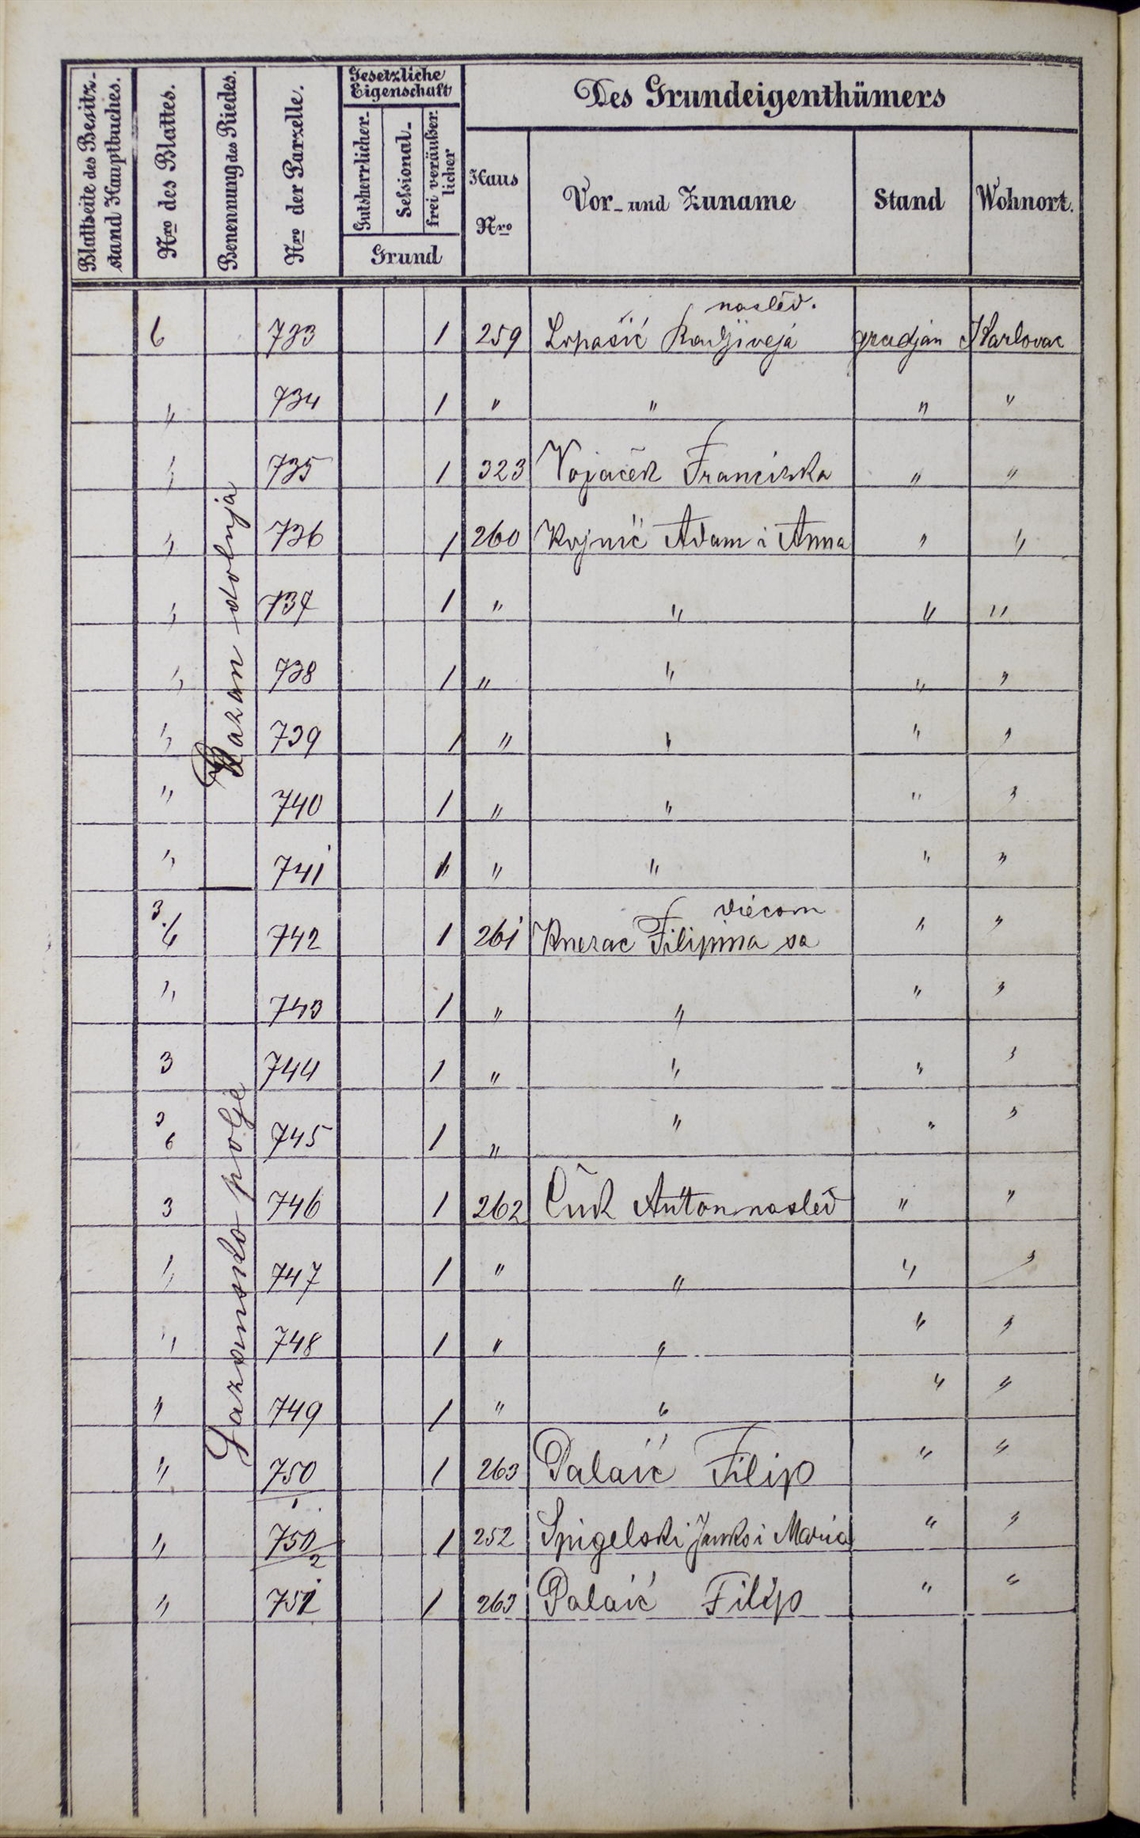 Blattseite des Besitz-stand Hauptbuches. Nro des Blattes. Benennung des Riedes. Nro der Parzelle. Gesetzliche Eigenschaft Des Grundeigenthümers
Gutsherrlicher. Sessional- frei veräußerlicher Grund Haus Nro Vor- und Zuname Stand Wohnort.
nasléd.
6 733 1 259 Lopašić gradjan Karlovac
" 734 1 " " " "
" 735 1 323 Vojaček Franciska " "
" 736 1 260 Kojnić Adam i Anna " "
" 737 1 " " " "
" 738 1 " " " "
" 739 1 " " " "
" 740 1 " " " "
" 741 1 " " " "
dolnja
viécom
3/6 742 1 261 Knezac Filipina sa " "
" 743 1 " " " "
3 744 1 " " " "
3/6 745 1 " " " "
3 746 1 262 Čuk Anton nasléd " "
" 747 1 " " " "
" 748 1 " " " "
" 749 1 " " " "
" 750/1 1 263 Palaić Filip " "
" 750/2 1 252 Spigelski Janko i Maria " "
" 751 1 263 Palaić Filip " "
Gazansko polje